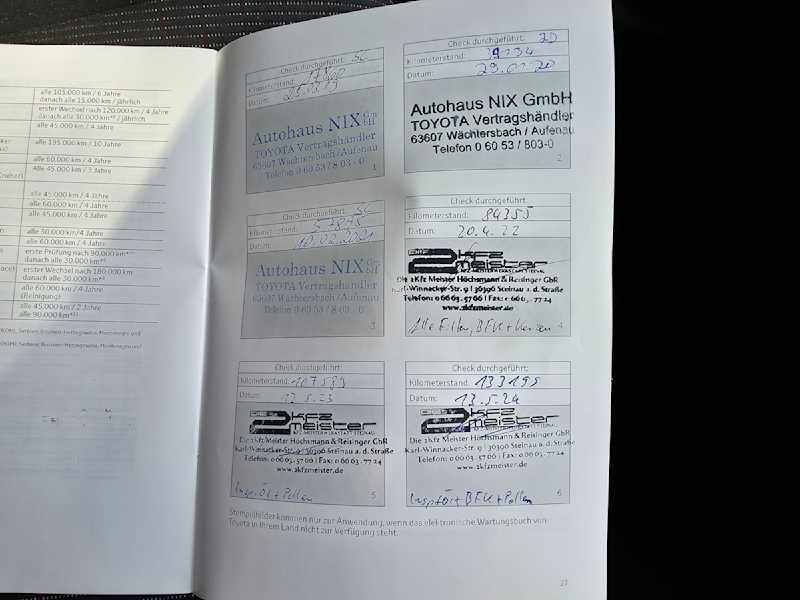 alle 105.000 km / 6 Jahre
danach alle 15.000 km / jährlich
erster Wechsel nach 120.000 km / 4 Jahre
alle 45.000 km / 4 Jahre
alle 195.000 km / 10 Jahre
alle 60.000 km / 4 Jahre
alle 45.000 km / 3 Jahre
alle 45.000 km / 4 Jahre
alle 60.000 km / 4 Jahre
alle 45.000 km / 4 Jahre
alle 30.000 km/4 Jahre
alle 60.000 km / 4 Jahre
erste Prüfung nach 90.000 km
danach alle 30.000 km
erster Wechsel nach 180.000 km
danach alle 30.000 km
alle 60.000 km / 4 Jahre
(Reinigung)
alle 45.000 km / 2 Jahre
alle 90.000 km
Check durchgeführt:
Kilometerstand:
Datum:
Autohaus NIX GmbH
TOYOTA Vertragshändler
63607 Wächtersbach / Aufenau
Telefon 0 60 53 / 8 03 - 0
1
Check durchgeführt:
Kilometerstand:
Datum:
Autohaus NIX GmbH
TOYOTA Vertragshändler
63607 Wächtersbach / Aufenau
Telefon 0 60 53 / 803-0
2
Check durchgeführt:
Kilometerstand:
Datum: 10.02.2021
Autohaus NIX GmbH
TOYOTA Vertragshändler
63607 Wächtersbach / Aufenau
Telefon 0 60 53 / 8 03 - 0
3
Check durchgeführt:
Kilometerstand: 84355
Datum: 20.4.22
2kfz
meister
Die 2kfz Meister Höchsmann & Reisinger GbR
Karl-Winnacker-Str. 9 | 36396 Steinau a. d. Straße
Telefon: 0 66 63 . 57 06 | Fax: 0 66 63 . 77 24
www.2kfzmeister.de
4
Check durchgeführt:
Kilometerstand: 107589
Datum: 12.5.23
2kfz
meister
Die 2kfz Meister Höchsmann & Reisinger GbR
Karl-Winnacker-Str. 9 | 36396 Steinau a. d. Straße
Telefon: 0 66 63 . 57 06 | Fax: 0 66 63 . 77 24
www.2kfzmeister.de
5
Check durchgeführt:
Kilometerstand: 133195
Datum: 13.5.24
2kfz
meister
Die 2kfz Meister Höchsmann & Reisinger GbR
Karl-Winnacker-Str. 9 | 36396 Steinau a. d. Straße
Telefon: 0 66 63 . 57 06 | Fax: 0 66 63 . 77 24
www.2kfzmeister.de
6
Stempelfelder kommen nur zur Anwendung, wenn das elektronische Wartungsbuch von
Toyota in Ihrem Land nicht zur Verfügung steht.
27